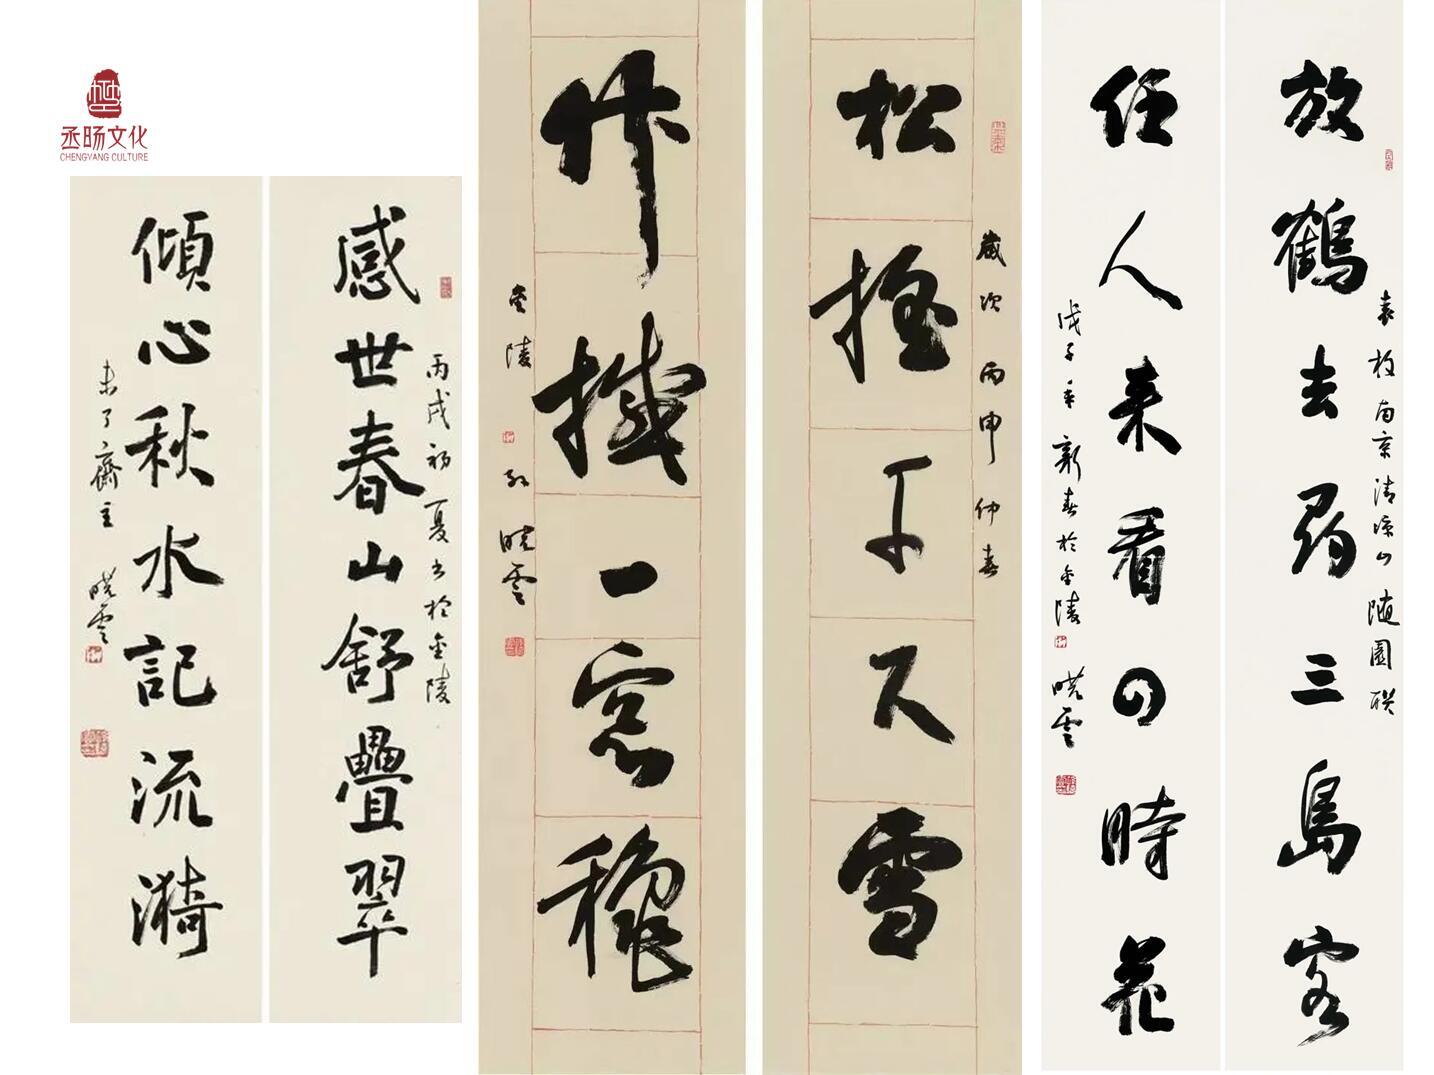 丞旸文化
CHENGYANG CULTURE
放鶴去尋三島客
袁枚南京清凉山随園联
任人来看四時花
戊子年新春於金陵
晓雲
松搖千尺雪
歲次丙申仲春
竹撼一窓秋
金陵孙晓雲
感世春山舒疊翠
丙戌初夏书於金陵
傾心秋水記流漪
未了齋主
晓雲